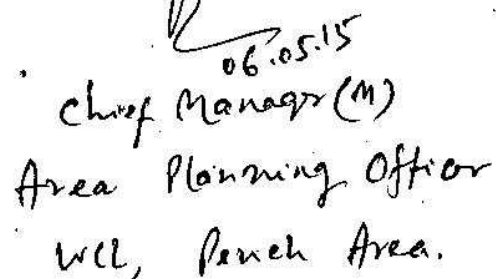 06.05.15
Chief Manager (M)
Area Planning Officer
WCL, Pench Area.